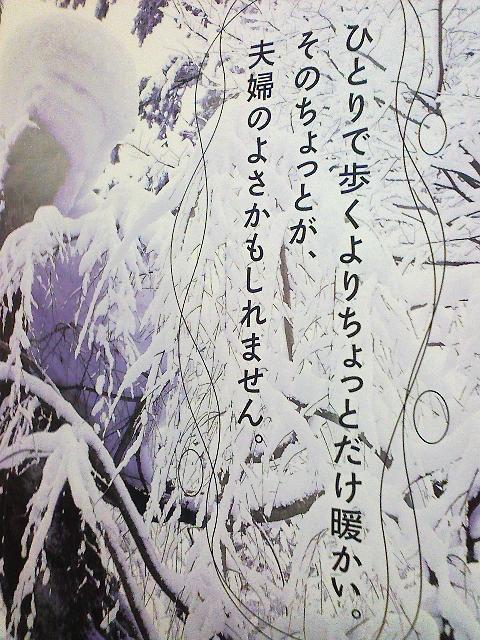 ひとりで歩くよりちょっとだけ暖かい。
そのちょっとが、
夫婦のよさかもしれません。